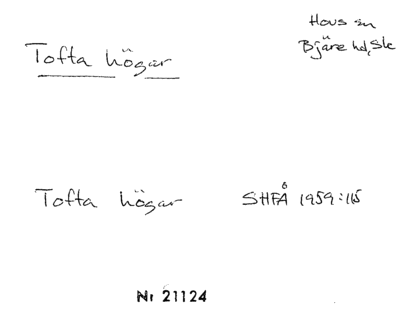 Hovs sn
Tofta högar
Bjäre hd, Sk
Tofta högar SHFÅ 1959:115
Nr 21124